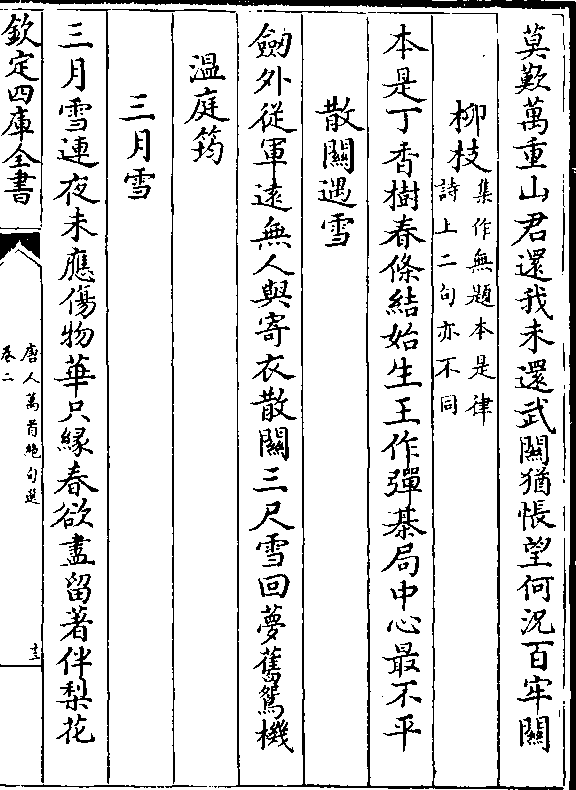 莫歎萬重山君還我未還武關猶悵望何況百牢關
柳枝
集作無題本是律
詩上二句亦不同
本是丁香樹春條結始生玉作彈棊局中心最不平
散關遇雪
劒外從軍逺無人與寄衣散關三尺雪回夢舊鴛機
温庭筠
三月雪
三月雪連夜未應傷物華只縁春欲盡留著伴梨花
欽定四庫全書
唐人萬首絶句選
卷二
十三